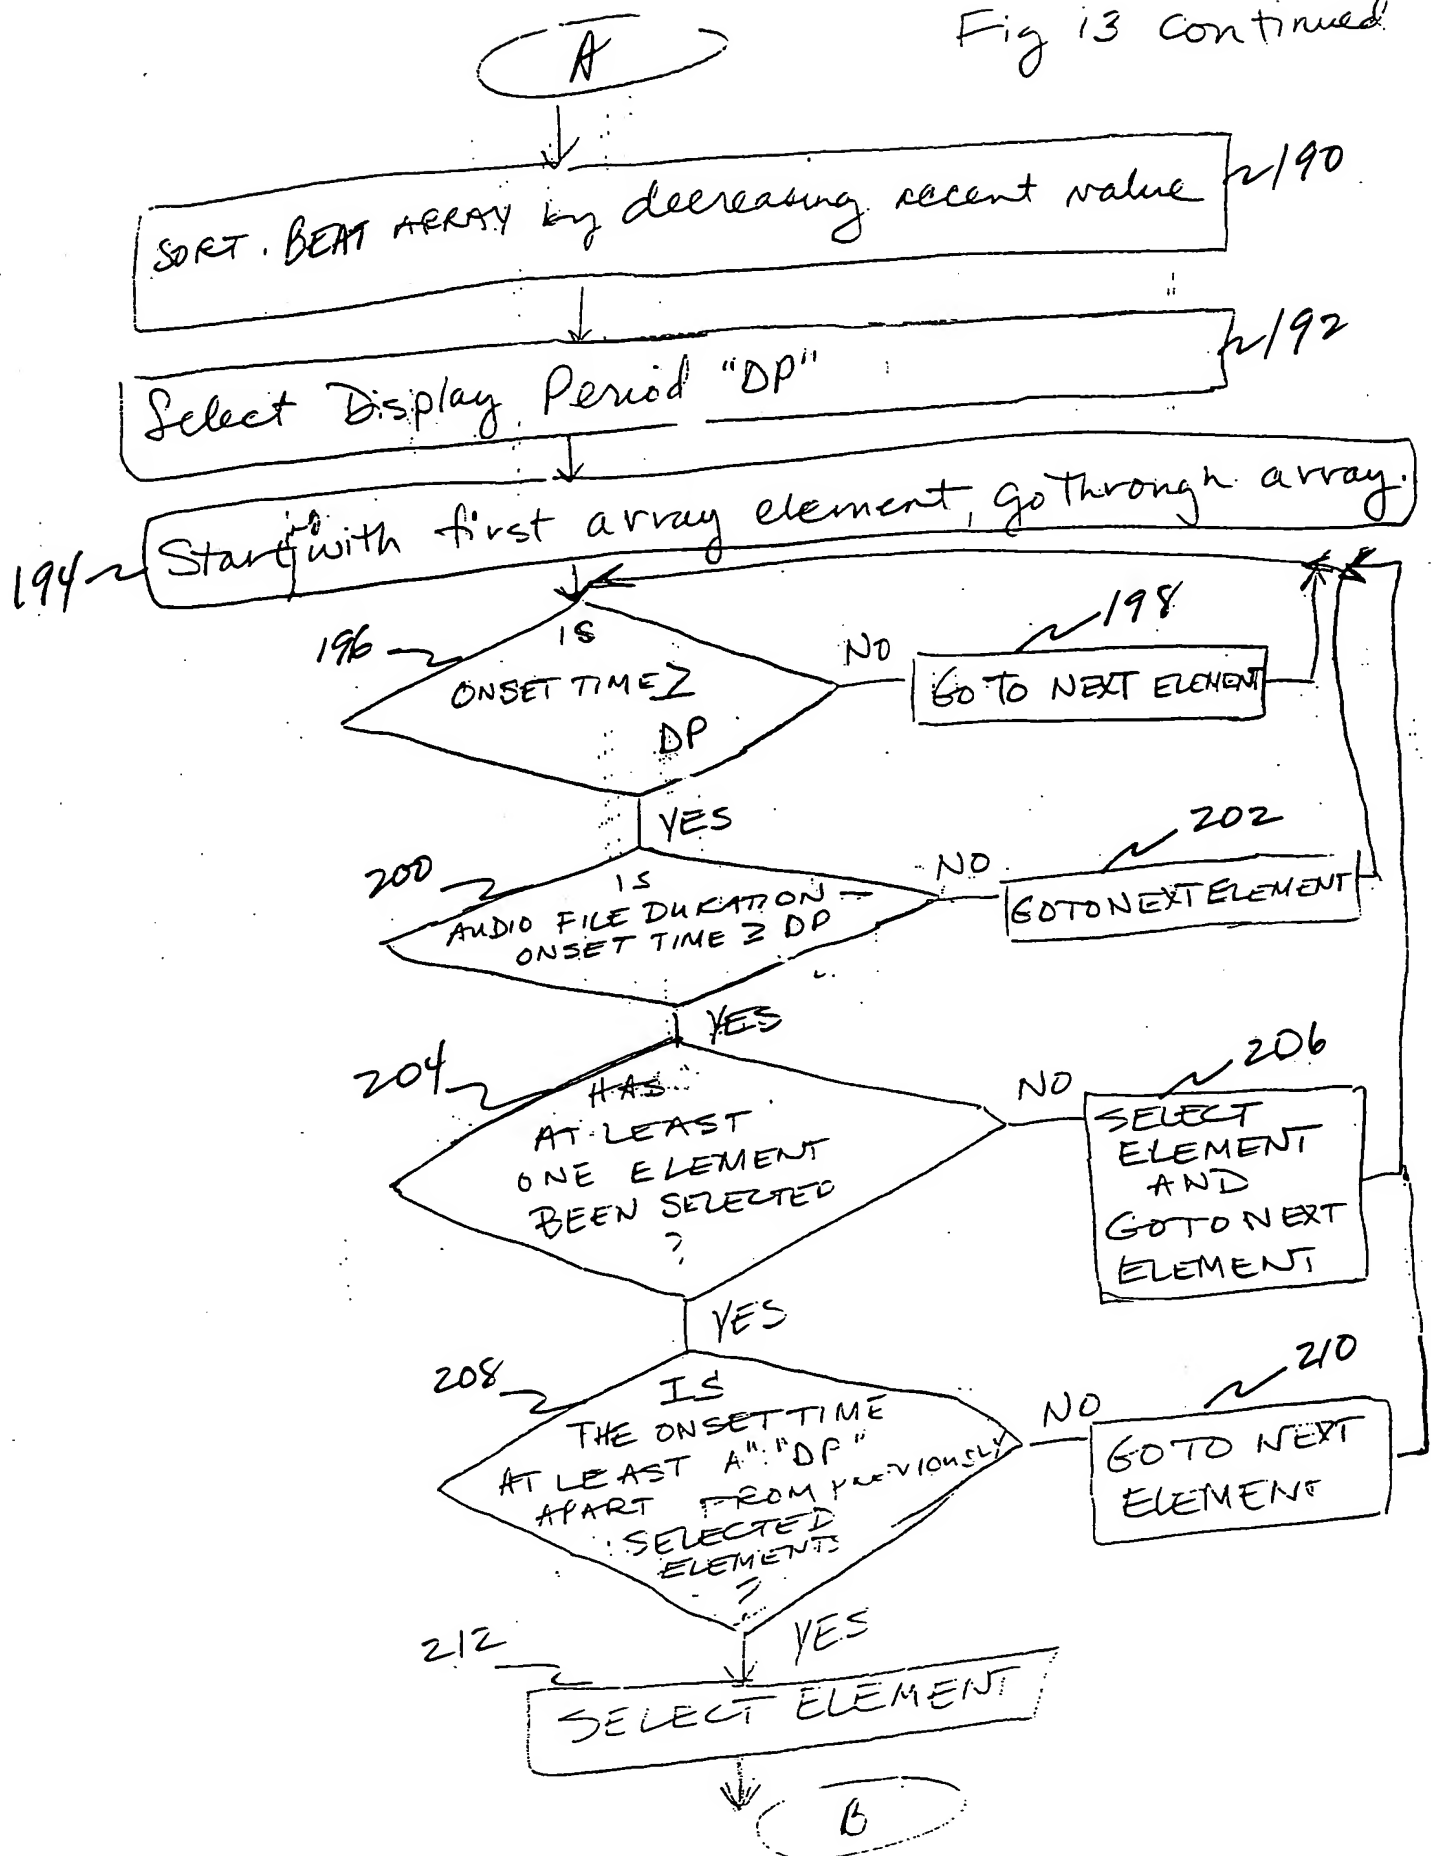 Fig 13 continued
A
SORT. BEAT ARRAY by decreasing accent value
190
Select Display Period "DP"
192
Start with first array element, go through array.
194
196
IS
ONSET TIME ≥
DP
NO
198
GO TO NEXT ELEMENT
YES
200
IS
AUDIO FILE DURATION —
ONSET TIME ≥ DP
NO
202
GO TO NEXT ELEMENT
YES
204
HAS
AT LEAST
ONE ELEMENT
BEEN SELECTED
?
NO
206
SELECT
ELEMENT
AND
GO TO NEXT
ELEMENT
YES
208
IS
THE ONSET TIME
AT LEAST A "DP"
APART FROM PREVIOUSLY
SELECTED
ELEMENTS
?
NO
210
GO TO NEXT
ELEMENT
YES
212
SELECT ELEMENT
B